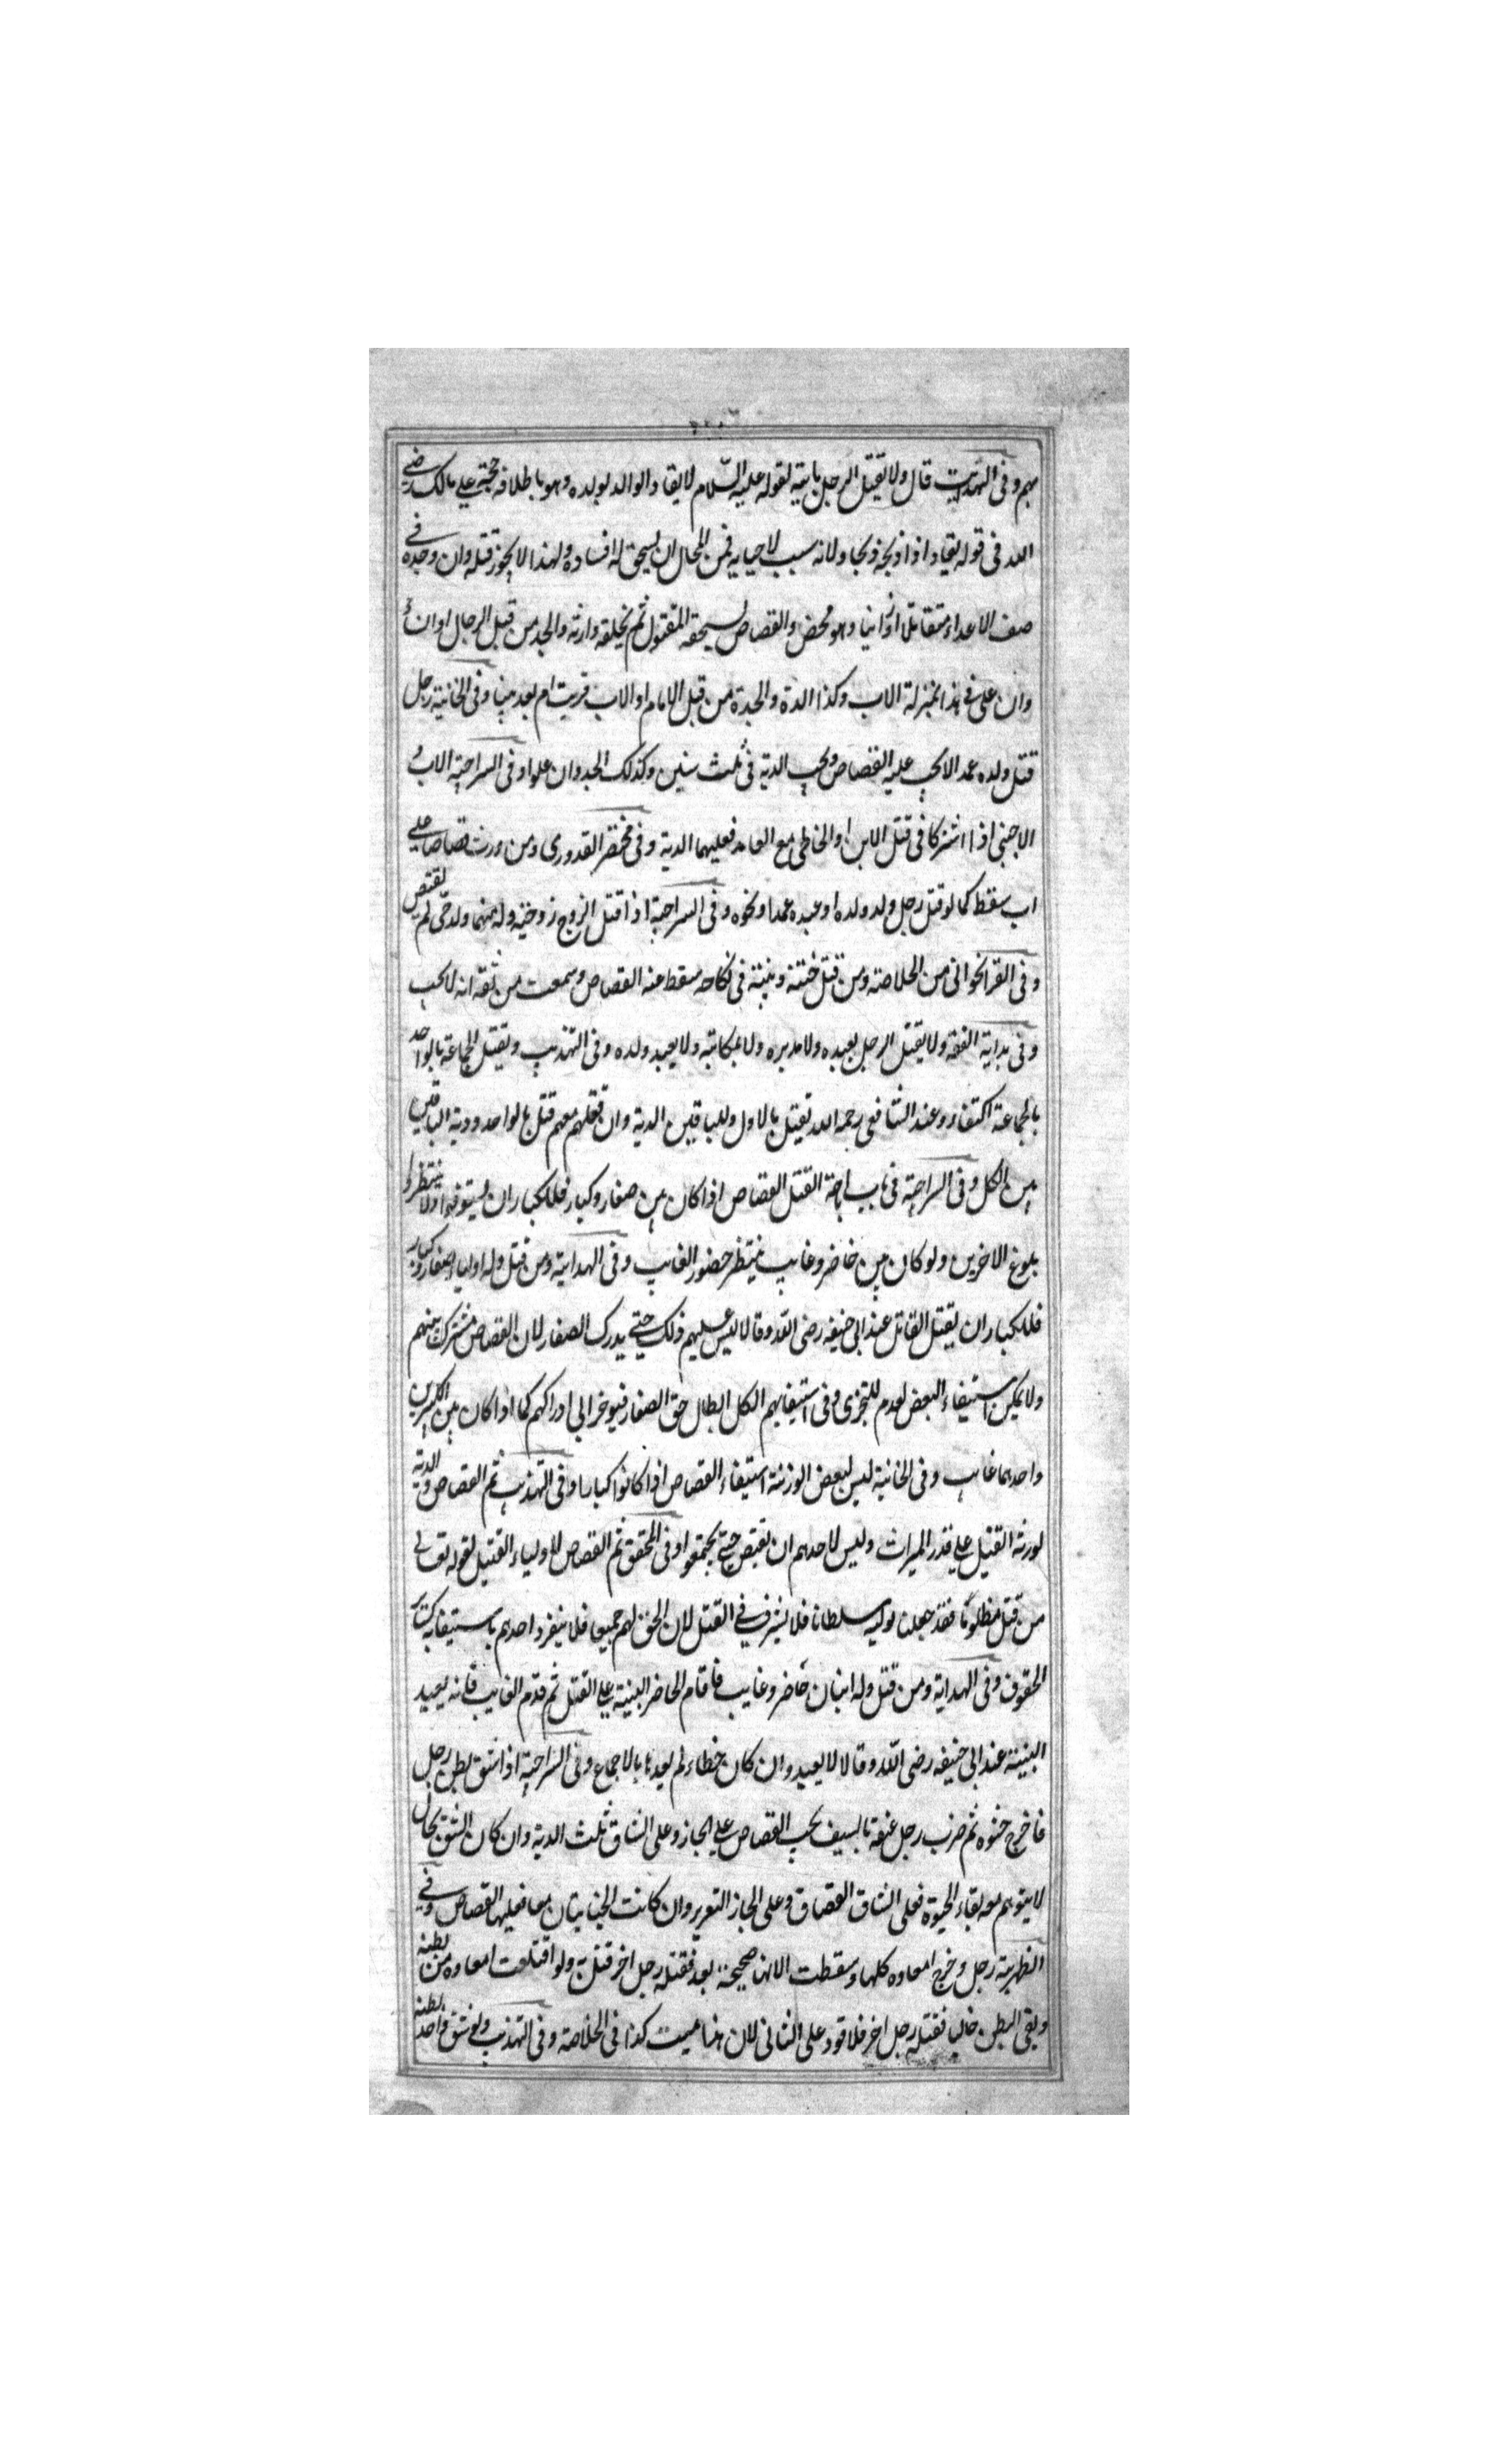 بهم وفى الهداية قال ولا يقتل الرجل بابنه لقوله عليه السّلام لا يقاد الوالد بولده وهو باطلاقه حجة على مالك رضي
الله فى قوله يقاد اذا ذبحه ذبحا ولانه سبب لاحيايه فمن المحال ان يستحق له افساده ولهذا لا يجوز قتله وان وجده في
صف الاعداء مقاتلا او زانيا وهو محصن والقصاص يستحقه المقتول ثم يخلفه وارثه والجد من قبل الرجال او ان
وان على فى هذا بمنزلة الاب وكذا الدة والجدة من قبل الامام او الاب قريت ام بعد منها وفى الخانية رجل
قتل ولده عمد الا يجب عليه القصاص ويجب الدية فى ثلث سنين وكذلك الجد وان علوا وفى السراجية الاب و
الاجنبى اذا اشتركا فى قتل الابن او الخاطى مع العامد فعليهما الدية وفى مختصر القدورى ومن ورث قصاصا على
اب سقط كما لو قتل رجل ولد ولده او عبده عمدا ونحوه وفى السراجية اذا قتل الزوج زوجته وله منها ولد حى لم يقتص
وفى القراخوانى من الخلاصة ومن قتل ختنه وبنته فى نكاحه سقط عنه القصاص وسمعت من ثقه انه لا يجب
وفى بداية الفقه ولا يقتل الرجل بعبده ولا مدبره ولا بمكاتبه ولا بعبد ولده وفى التهذيب ويقتل الجماعة بالواحد
بالجماعة اكتفاء وعند الشافعى رحمه الله تقيتل بالاول وللباقين الدية وان قتلهم معهم قتل بالواحد ودية الباقين
بين الكل وفى السراجية فى باب اباحة القتل القصاص اذا كان بين صغار وكبار فللكبار ان يستوفوا ولا ينتظر
بلوغ الاخرين ولو كان بين حاضر وغايب ينتظر حضور الغايب وفى الهداية ومن قتل وله اولياء صغار وكبار
فللكبار ان يقتل القاتل عند ابى حنيفه رضى الله وقالا ليس عليهم ذلك حتى يدرك الصغار لان القصاص مشترك بينهم
ولا يمكن استيفاء البعض لعدم للتجزى وفى استيفايهم الكل ابطال حق الصغار فيوخر الى ادراكهم كما اذا كان بين الكبيرين
واحدهما غايب وفى الخانية ليس لبعض الورثة استيفاء القصاص اذا كانوا كبارا وفى التهذيب ثم القصاص والدية
لورثة القتيل على قدر الميراث وليس لاحدهم ان يقتص حتى يجتمعوا وفى المحقق ثم القصاص لاولياء القتيل لقوله تعالى
من قتل مظلومًا فقد جعلنا لوليه سلطانا فلا يشرف في القتل لان الحق لهم جميعا فلا ينفرد احدهم باستيفايه كساير
الحقوق وفى الهداية ومن قتل وله ابنان حاضر وغايب فاقام الحاضر البينة على القتل ثم قدم الغايب فانه يعيد
البينة عند ابى حنيفه رضى الله وقالا لا يعيد وان كان خطاء لم يعدها بالاجماع وفى السراجية اذا شق بطن رجل
فاخرج حشوه ثم ضرب رجل عنقه بالسيف يجب القصاص على الجاز وعلى الشاق ثلث الدية وان كان الشق بحال
لا يتوهم معه بقاء الحيوة فعلى الشاق القصاق وعلى الجاز التعزير وان كانت الجنايتان معا فعليها القصاص وفي
الظهرية رجل وخرج امعاوه كلها وسقطت الا انها صحيحة بعد فقتله رجل اخر قتل به ولو اقتلعت امعاوه من بطنه
وبقى البطن خاليا فقتله رجل اخر فلا قود على الثانى لان هنا ميت كذا فى الخلاصة وفى التهذيب ولو شق واحد بطنه